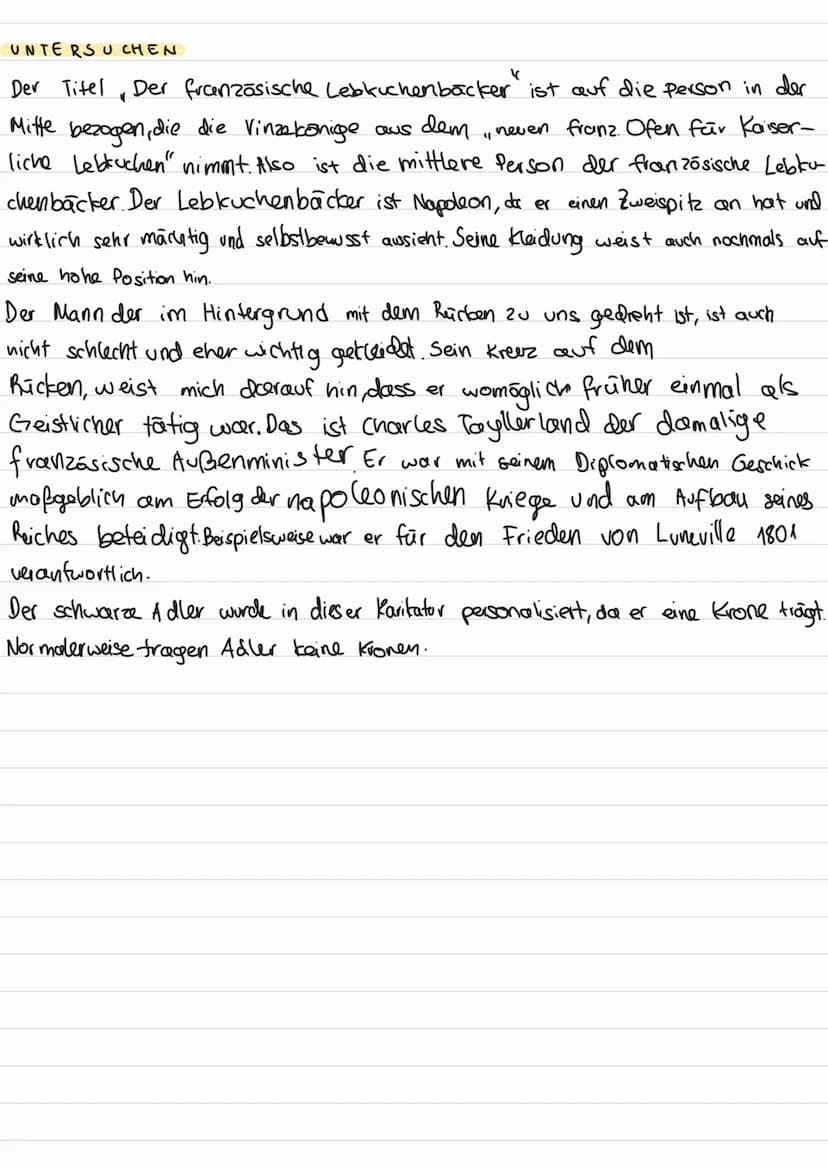 UNTERSUCHEN
Der Titel „Der französische Lebkuchenbäcker“ ist auf die Person in der
Mitte bezogen, die die Vinzekönige aus dem „neuen franz. Ofen für Kaiser-
liche Lebkuchen“ nimmt. Also ist die mittlere Person der französische Lebku-
chenbäcker. Der Lebkuchenbäcker ist Napoleon, da er einen Zweispitz an hat und
wirklich sehr mächtig und selbstbewusst aussieht. Seine Kleidung weist auch nochmals auf
seine hohe Position hin.
Der Mann der im Hintergrund mit dem Rücken zu uns gedreht ist, ist auch
nicht schlecht und eher wichtig gekleidet. Sein Kreuz auf dem
Rücken, weist mich darauf hin, dass er womöglich früher einmal als
Geistlicher tätig war. Das ist Charles Tayllerland der damalige
französische Außenminister. Er war mit seinem Diplomatischen Geschick
maßgeblich am Erfolg der napoleonischen Kriege und am Aufbau seines
Reiches beteidigt. Beispielsweise war er für den Frieden von Luneville 1801
verantwortlich.
Der schwarze Adler wurde in dieser Karikatur personalisiert, da er eine Krone trägt.
Normalerweise tragen Adler keine Kronen.